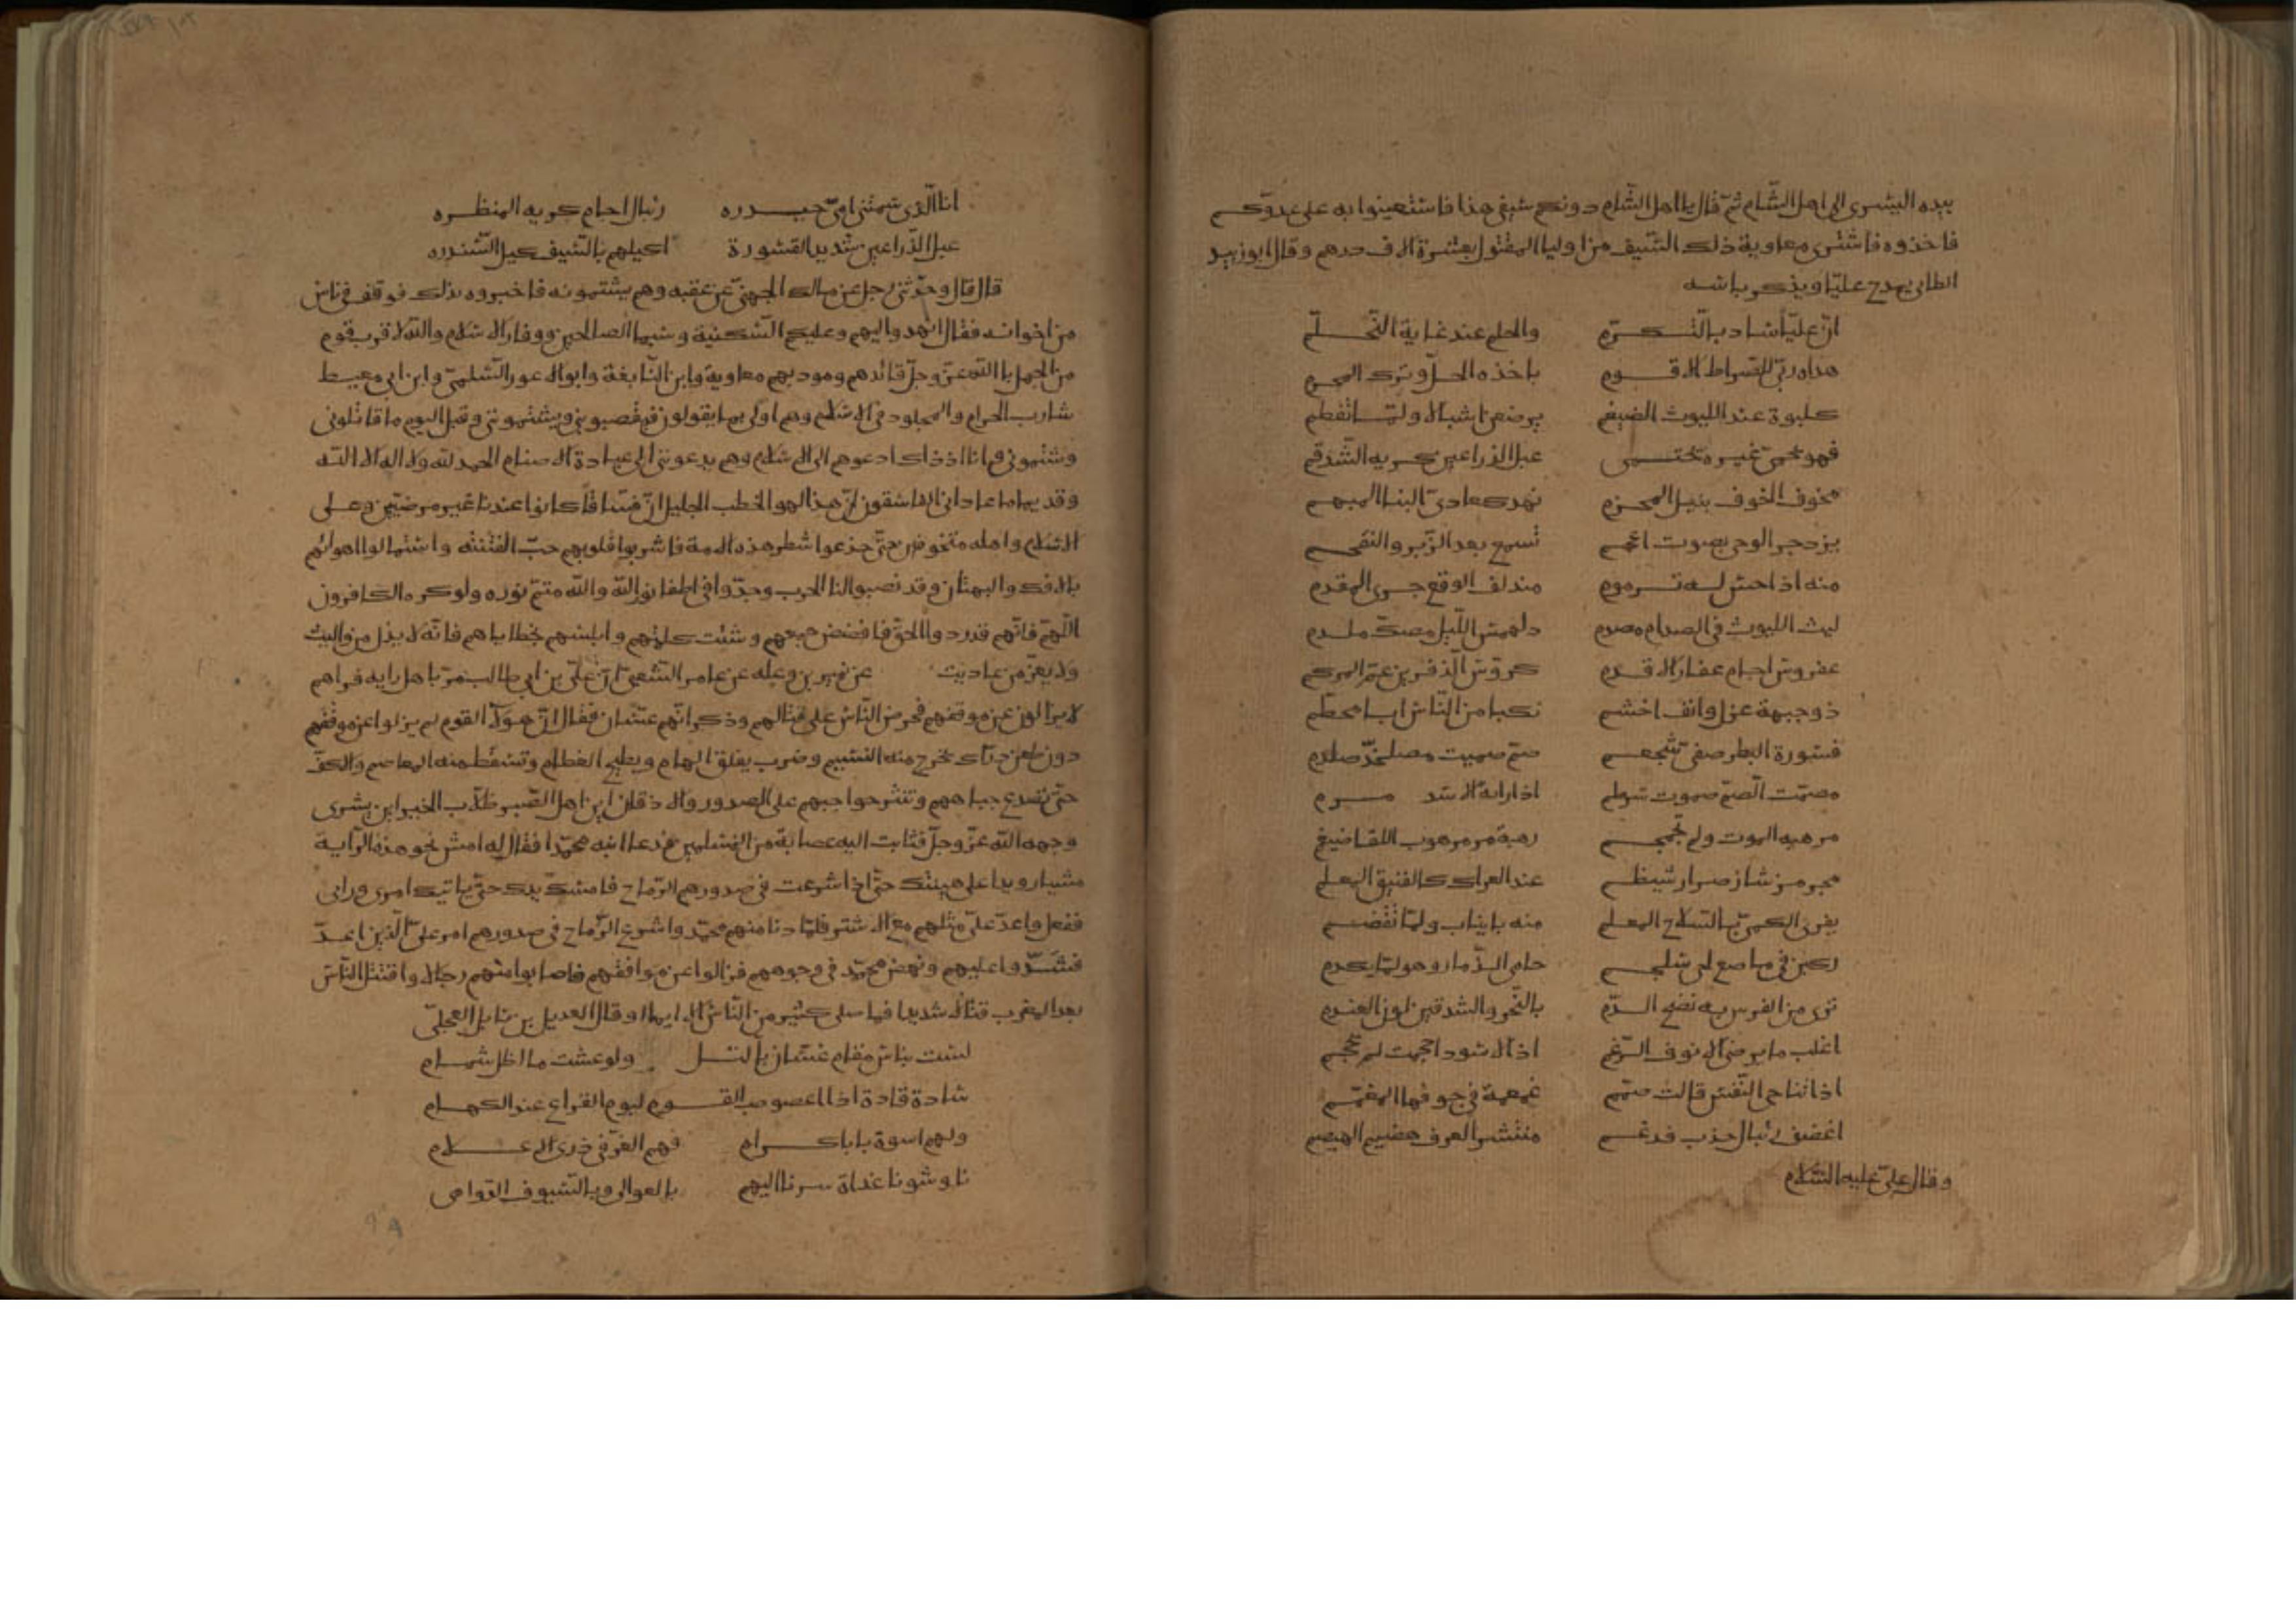 بيده اليسرى الى اهل الشّام ثمّ قال يا اهل الشّام دونكم سيفي هذا فاستعينوا به على عدوّكم
فاخذوه فاشترى معاوية ذلك السّيف من اوليا المقتول بعشرة الاف درهم وقال ابوزبيد
الطائى يمدح عليّا ويذكر باسه
انّ عليّا ساد بالتّكرّم والحلم عند غاية التّحلّم
هداه ربّى للصّراط الاقوم باخذه الحلّ وترك المحرم
كلبوة عند الليوث الضيغم يرضعن اشبالا ولمّا تفطم
فهو يحمى غير ويحتمى عبل الذراعين كريه الشّدقم
مخوف الخوف نبيل المحزم نهد كعادىّ البنا المبهم
يزدجر الوحى بصوت اعجم تسمع بعد الزّبر والتقحم
منه اذا احسّ له ترموم مندلف الوقع جرى المقدم
ليث الليوث فى الصدام مصدم دلهمس اللّيل مصكّ ملدم
عفروس اجام عقار الاقدم كروّس الذفرين عمّ المركم
ذو جبهة عزل وانف اخشم نكبا من النّاس ابا محطم
قسورة البطر صفىّ شجعم صمّ صميت مصلخدّ صلدم
مصمّت الصّمّ صموت سرطم اذا راته الاسد مرم
من هيبة الموت ولم تجمجم رهبة مرهوب اللقا ضيغم
مجرمز شاز ضرار شيظم عند العراك كالفنيق المعلم
يفرى الكمىّ بالسّلاح المعلم منه بانياب ولمّا تقضم
ركين فى ماضع لى سلجم حامى الذّمار وهو لمّا يكدم
ترى من الفرس به نضح الدّم بالنّحر والشدقين لون العندم
اغلب ما يرضى الانوف الرّغم اذا الاسود احجمت لم يحجم
اذا تناجى النّفس قالت صمّم غمغمة فى جوفها المغمّم
اغضف رئبال خدب فدغم منتشر العرف هضيم الهيصم
وقال علىّ عليه السّلام
انا الّذى سمتنى امّى حيدره رئبال اجام كريه المنظره
عبل الذّراعين شديد القسورة اكيلهم بالسّيف كيل السّندره
قال قال وحدّثنى رجل عن مالك الجهنىّ عن عقبه وهم يشتمونه فاخبروه بذلك فوقف فى ناس
من اخوانه فقال انهدوا اليهم وعليكم السّكينة وسيما الصالحين ووقار الاسلام والله لاقرب قوم
من الجهل بالله عزّ وجلّ قائدهم ومودبهم معاوية وابن النّابغة وابوالاعور السّلمىّ وابن ابى معيط
شارب الحرام والمجلود فى الاسلام وهم اولى بما يقولون فيقصبوننى ويشتموننى وقبل اليوم ما قاتلونى
وشتمونى وانا اذ ذاك ادعوهم الى الاسلام وهم يدعوننى الى عبادة الاصنام الحمد لله ولا اله الا الله
وقديما ما عادانى الفاسقون انّ هذا لهو الخطب الجليل انّ فسّاقا كانوا عندنا غير مرضيّين وعلى
الاسلام واهله متخوفين حتى خدعوا شطر هذه الامة فاشربوا قلوبهم حبّ الفتنة واستمالوا اهوائهم
بالافك والبهتان وقد نصبوا لنا الحرب وجدّوا فى اطفا نور الله والله متمّ نوره ولو كره الكافرون
اللّهمّ فانّهم قد ردوا الحقّ فافضض جمعهم وشتّت كلمتهم وابلسهم بخطاياهم فانّه لا يذل من واليت
ولا يعزّ من عاديت عن نمير بن وعله عن عامر الشّعبى انّ علىّ بن ابى طالب مرّ باهل رايه فراهم
لا يزالون عن موقفهم فحرض النّاس على قتالهم وذكر انّهم غسّان فقال انّ هولا القوم لم يزلوا عن موقفهم
دون طعن دراك تخرج منه النسيم وضرب يفلق الهام ويطيح العظام وتسقط منه المعاصم والاكفّ
حتّى تصدع جباههم وتنثر حواجبهم على الصدور والاذقان اين اهل الصّبر طلّاب الخير اين يشرى
وجهه الله عزّ وجلّ فثابت اليه عصابة من المسلمين فدعا ابنه محمّدا فقال له امش نحو هذه الرّاية
مشيا رويدا على هينتك حتّى اذا اشرعت فى صدورهم الرّماح فامسك يدك حتّى ياتيك امرى ورايى
ففعل واعدّ علىّ مثلهم مع الاشتر فلمّا دنا منهم محمّد واشرع الرّماح فى صدورهم امر علىّ الّذين اعدّ
فشدّوا عليهم ونهض محمّد فى وجوههم فزالوا عن مواقفهم فاصابوا منهم رجالا واقتتل النّاس
بعد المغرب قتالا شديدا فما صلى كثير من النّاس الا ايماا وقال العديل بن نايل العجلىّ
لست بناس مقام غسّان بالتل ولو عشت ما اظل شمام
سادة قادة اذا اعصوصب القوم ليوم القراع عند الكهام
ولهم اسوة بابا كرام فهم الغرّ فى ذرى الاعلام
ناوشونا غداة سرنا اليهم بالعوالى وبالسّيوف الدّوامى